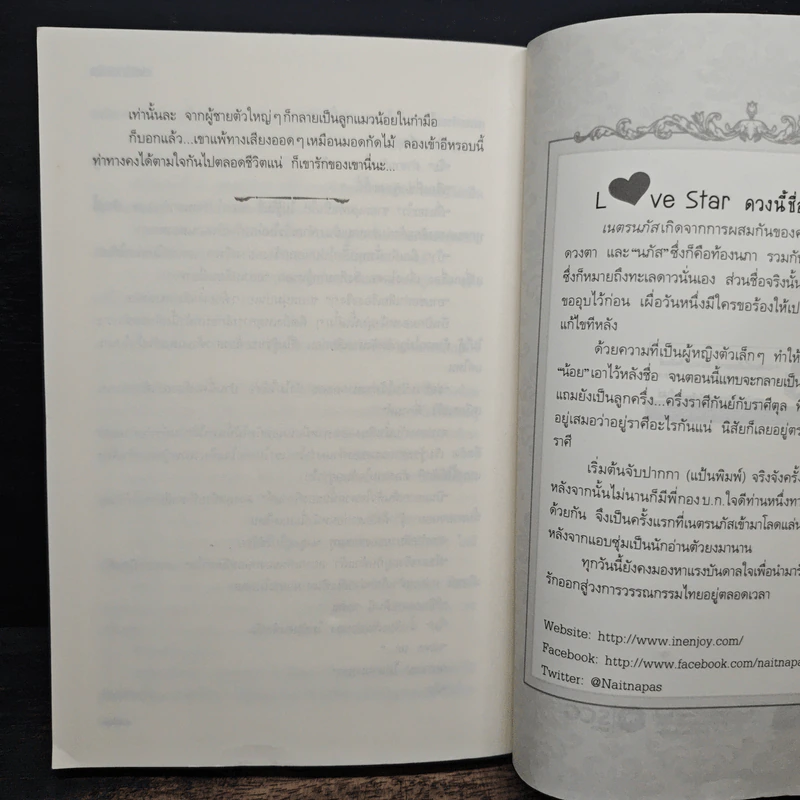 เท่านั้นละ จากผู้ชายตัวใหญ่ๆ ก็กลายเป็นลูกแมวน้อยในกำมือ
ก็บอกแล้ว...เขาแพ้ทางเสียงออดๆ เหมือนมอดกัดไม้ ลองเข้าอีหรอบนี้
ท่าทางคงได้ตามใจกันไปตลอดชีวิตแน่ ก็เขารักของเขานี่นะ...
L♥ve Star ดวงนี้ชื่อ
เนตรนภัส เกิดจากการผสมกันของ
ดวงตา และ “นภัส” ซึ่งก็คือท้องนภา รวมกัน
ซึ่งก็หมายถึงทะเลดาวนั่นเอง ส่วนชื่อจริงนั้น
ขออุบไว้ก่อน เผื่อวันหนึ่งมีใครขอร้องให้เป
แก้ไขทีหลัง
ด้วยความที่เป็นผู้หญิงตัวเล็กๆ ทำให้
“น้อย” เอาไว้หลังชื่อ จนตอนนี้แทบจะกลายเป็น
แถมยังเป็นลูกครึ่ง...ครึ่งราศีกันย์กับราศีตุล
อยู่เสมอว่าอยู่ราศีอะไรกันแน่ นิสัยก็เลยอยู่ตร
ราศี
เริ่มต้นจับปากกา (แป้นพิมพ์) จริงจังครั้ง
หลังจากนั้นไม่นานก็มีพี่กอง บ.ก.ใจดีท่านหนึ่งทา
ด้วยกัน จึงเป็นครั้งแรกที่เนตรนภัสเข้ามาโลดแล่น
หลังจากแอบซุ่มเป็นนักอ่านตัวยงมานาน
ทุกวันนี้ยังคงมองหาแรงบันดาลใจเพื่อนำมาร้
รักออกสู่วงการวรรณกรรมไทยอยู่ตลอดเวลา
Website: http://www.inenjoy.com/
Facebook: http://www.facebook.com/naitnapa
Twitter: @Naitnapas